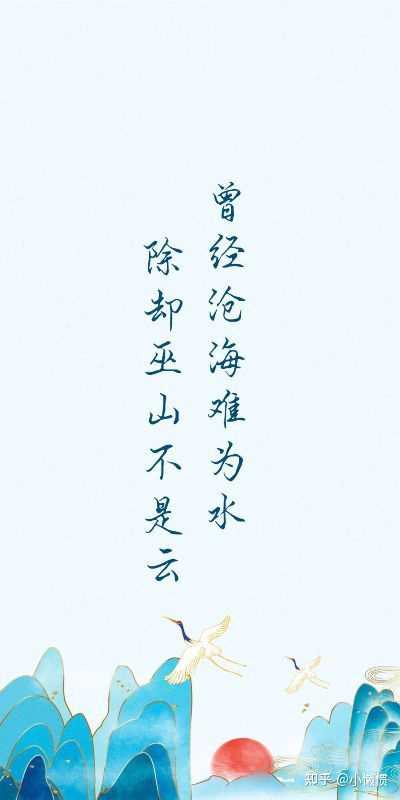 曾经沧海难为水
除却巫山不是云
知乎 @小懒惯